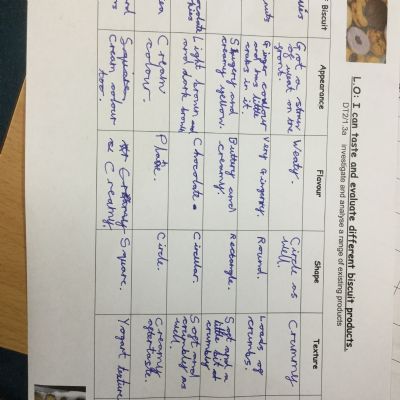 L.O: I can taste and evaluate different biscuit products.
DT2/1.3a investigate and analyse a range of existing products
Biscuit
Appearance
Flavour
Shape
Texture
Got a
of weat on the
front.
Weaty.
Circle as
well.
Crummy
Ginger colour
and has little
cracks in it.
Very gingery.
Round.
Loads of
crumbs.
Sugery and
creamy yellow.
Buttery and
creamy.
Rectangle.
Soft and a
little bit of
crumbly
Light brown and
and dark brown
Chocolate
Circular.
Soft and
crumbly as
well.
Cream
colour.
Plane.
Circle.
Creamy
aftertaste.
Square
Cream colour
too.
Creamy.
Square.
Yogart texture